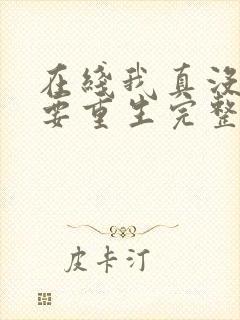 在綫我真没
要重生完整
皮卡汀